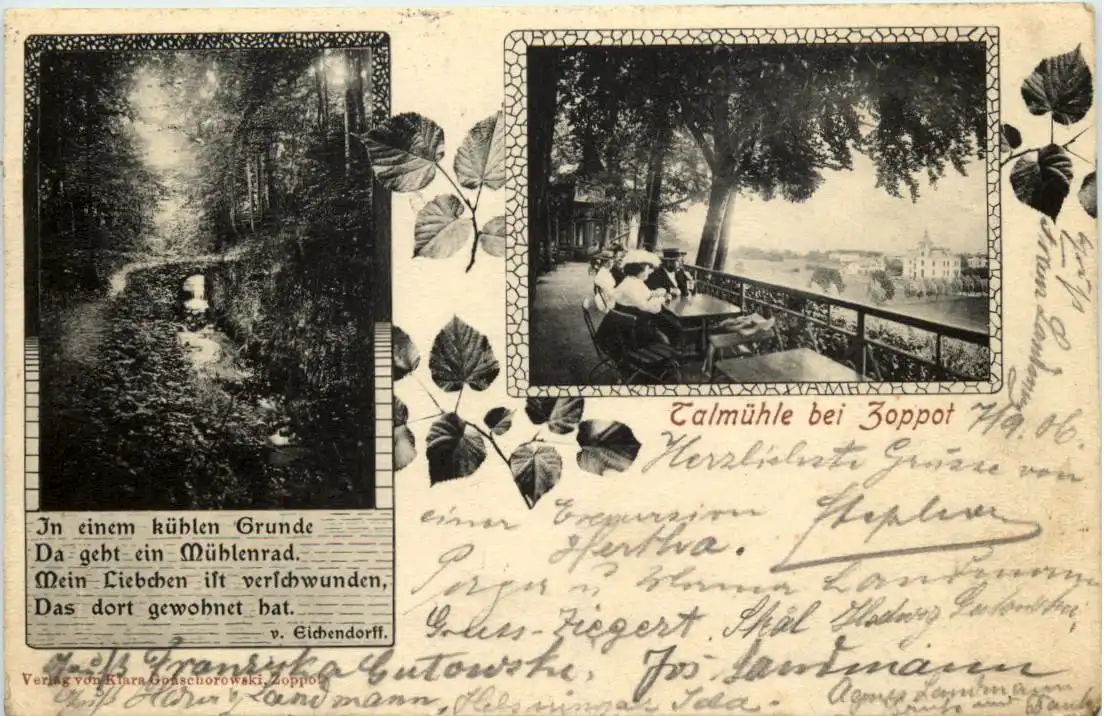 In einem kühlen Grunde
Da geht ein Mühlenrad.
Mein Liebchen iſt verſchwunden,
Das dort gewohnet hat.
v. Eichendorff.
Verlag von Klara Gonschorowski, Zoppot
Talmühle bei Zoppot
7/9. 06.
Herzlichste Grüsse von
einer Excursion
Hertha.
u Werner Landmann
Gruss-Ziegert. Skål Hedwig Gutowski,
Gruß Franziska Gutowski. Jos Landmann
Gruß Landmann, Helsningar Ida.
Agnes Landmann